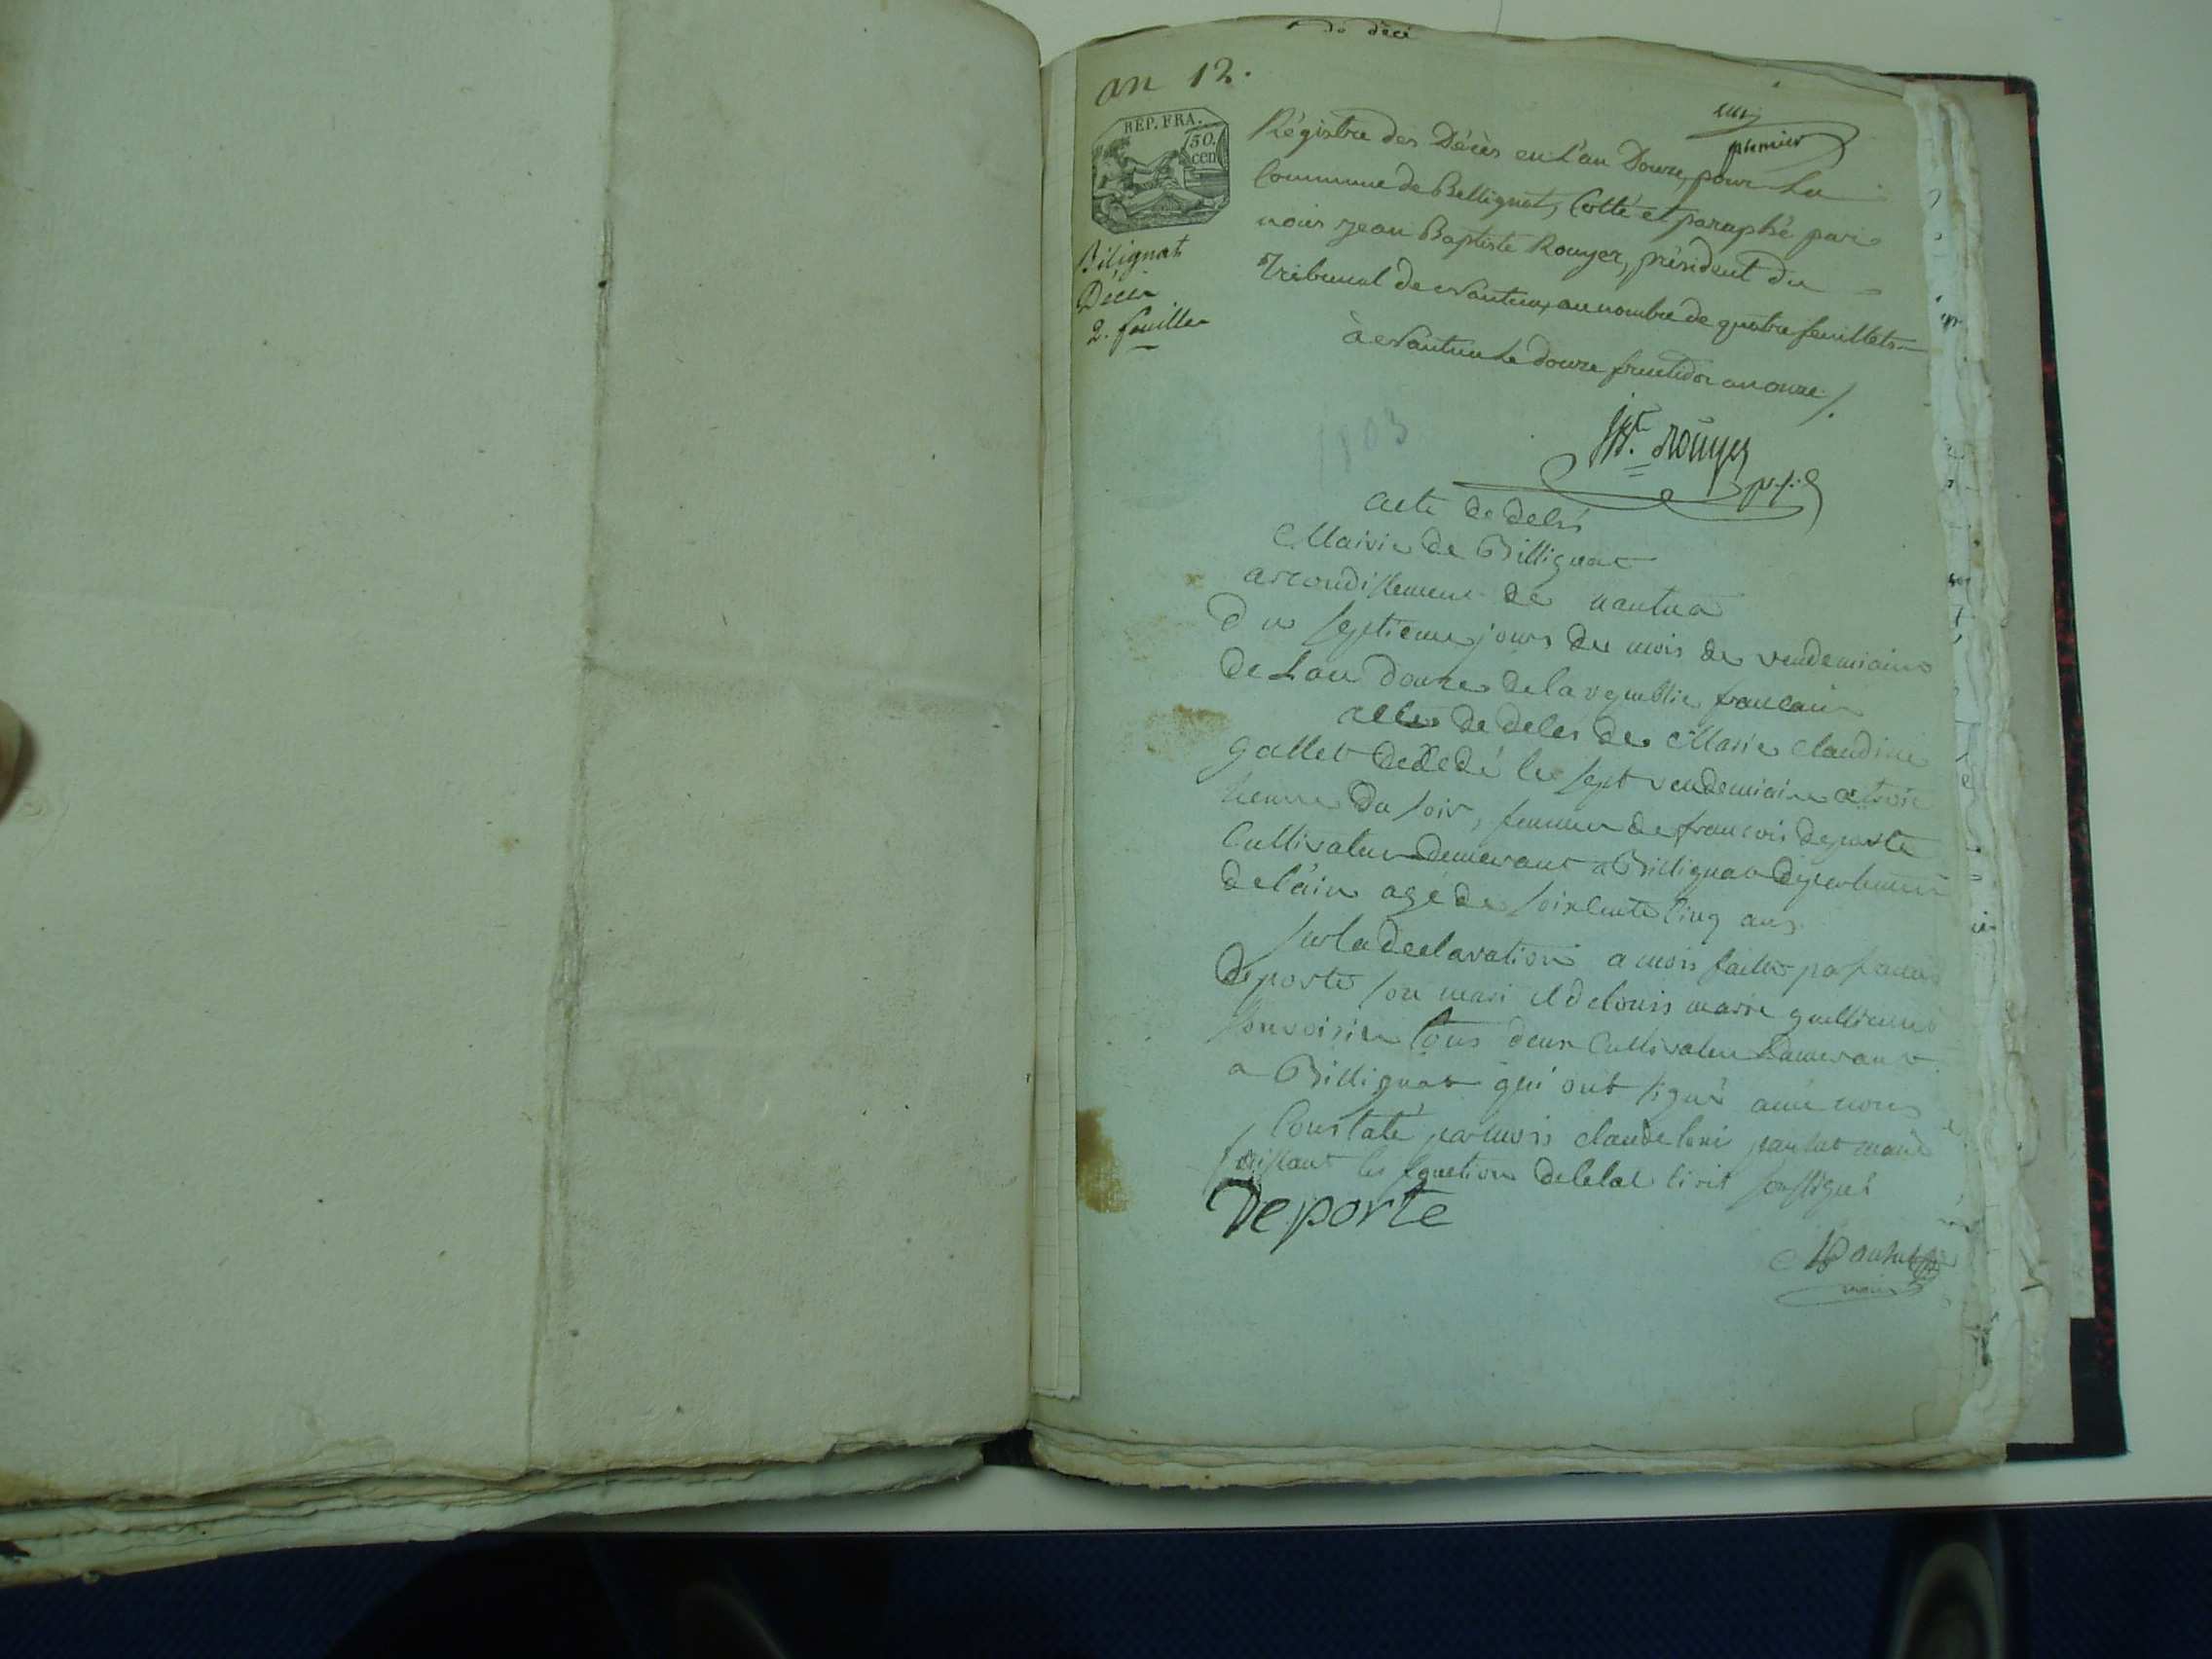 de déce
an 12.
REP. FRA.
50.
cen
Bilignat
Décès
2. feuilles
premier
Régistre des Décès en L'an Douze, pour La
Commune de Bellignat, Cotté et paraphé par
nous Jean Baptiste Rouyer, président du
Tribunal de Nantua, au nombre de quatre feuillets
à Nantua Le douze fructidor an onze /.
1803
JBte. Rouyer
acte de delsé
Mairie de Billignat
arrondissement de nantua
du septieme jours du mois de vendemiaire
de Lan douze de la republie francaise
acte de deles de Marie Claudine
gallet dedédé le sept vendemiaire a trois
heure du soir, femme de francois deporte
Cultivateur demerant a Billignat departement
de l'ain agé de soixente cinq ans
sur la declaration a mois faitte pa francois
deporte son mari et de louis marie guilliermet
son voisin tous deux Cultivateur demerant
a Billignat qui ont signé avec nous
Constaté par mois claude loui panhat maire
faissant les fonction de letat sivit soussigné
Deporte
maire